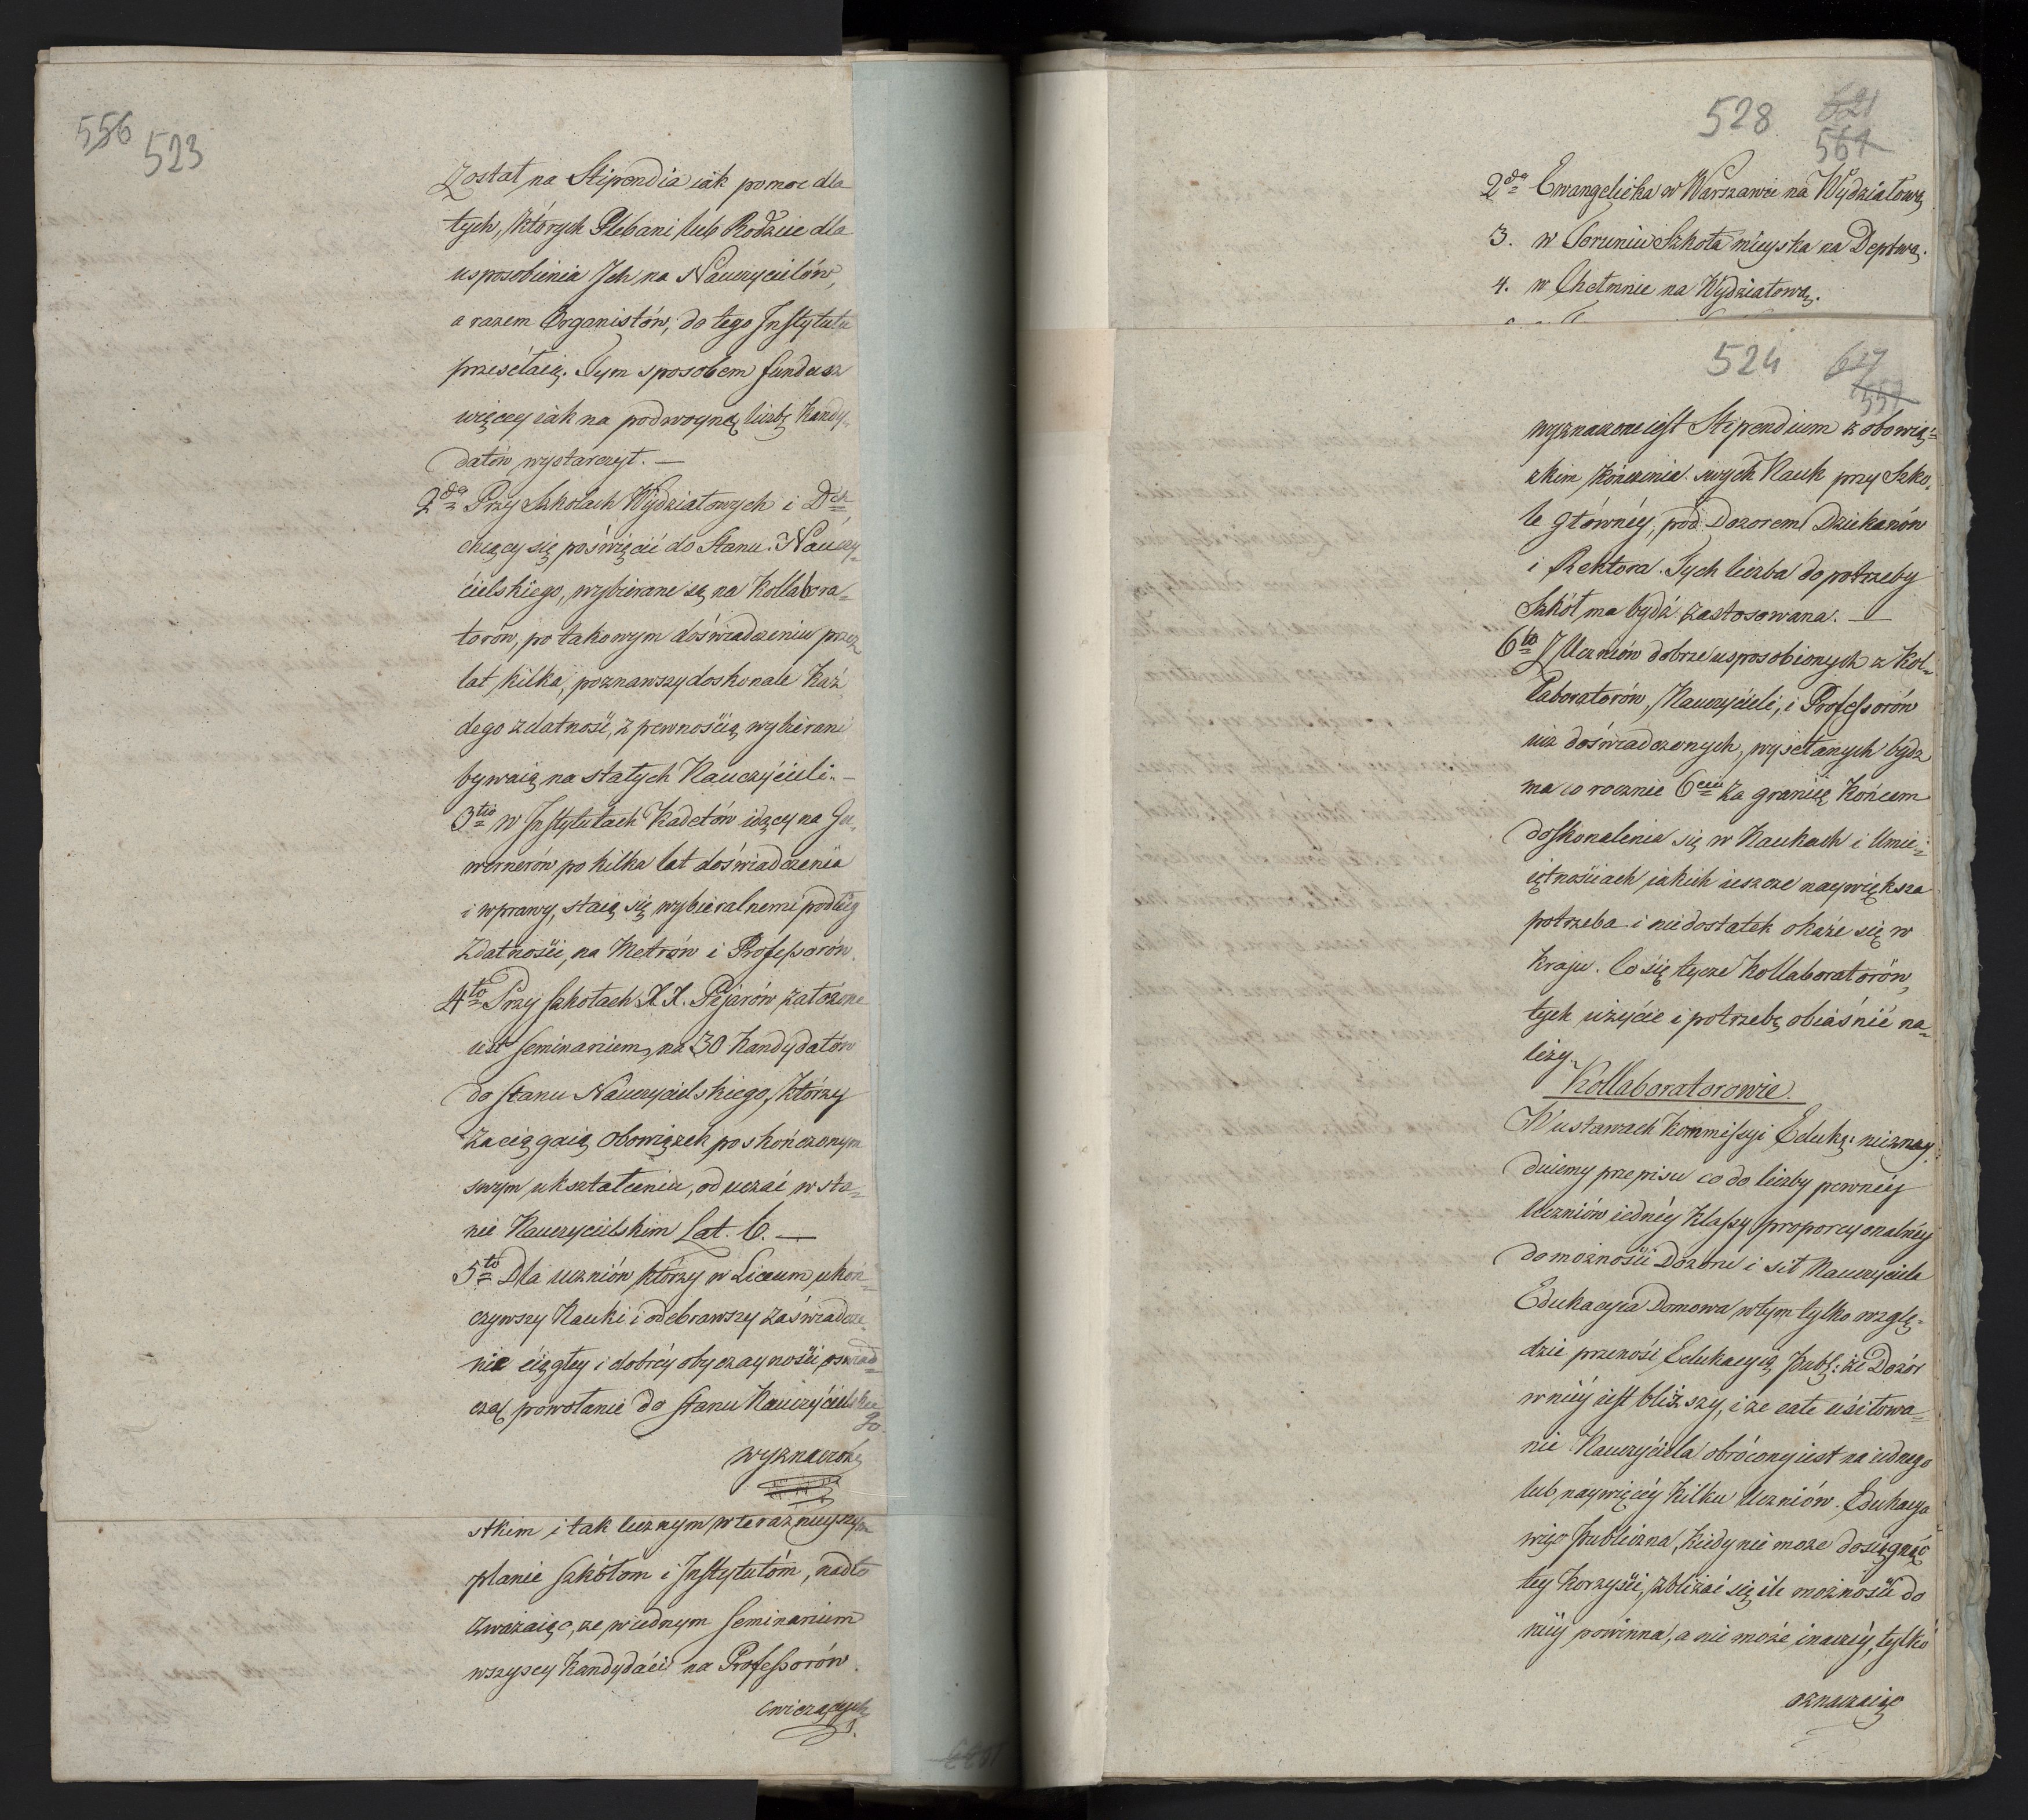 556
523
Został na Stipendia iak pomoc dla
tych, których Plebani lub Rodzice dla
usposobienia Jch na Nauczycielów,
a razem Organistów, do tego Jnstytutu
przesełaią. Tym sposobem fundusz
więcey iak na podwoyną liczbę Kandy-
datów wystarczył. —
2da Przy Szkołach Wydziałowych i Dch
chcący się poświęcić do Stanu Nauczy-
cielskiego, wybierane są na Kollabora-
torów, po takowym doświadczeniu przez
lat kilka, poznawszy doskonale Każ
dego zdatność, z pewnością wybierani
bywaią na stałych Nauczycieli. —
3tio W Jnstytutach Kadetów idący na Gu-
wernerów po kilka lat doświadczenia
i wprawy, staią się wybieralnemi podług
Zdatności, na Metrów i Professorów.
4to Przy szkołach X.X. Pijarów założone
iest seminarium, na 30 Kandydatów
do stanu Nauczycielskiego, którzy
Zaciągaią Obowiązek po skończonym
swym ukształceniu, od uczać w sta-
nie Nauczycielskim Lat. 6. —
5to Dla uczniów którzy w Liceum ukoń-
czywszy Nauki i odebrawszy zaświadcze-
nie ciągłey i dobréy obyczayności, oswiad-
czą powołanie do stanu Nauczycielskie
go.
wyznaczone
stkim i tak licznym w teraznieyszym
planie szkółom i Jnstytutóm, nadto
zważaiąc, ze w iednym seminarium
wszyscy Kandydaci na Professorów.
cwiczących
528 521
564
2da Ewangelicka w Warszawie na Wydziałową
3. w Toruniu Szkoła mieyska na Deptwą.
4. w Chełmnie na Wydziałową.
524
557
wyznaczone iest Stipendium z obowią-
zkim kończenia swych Nauk przy Szko-
le główney, pod Dozorem Dziekanów
i Rektora. Tych liczba do potrzeby
Szkół ma bydź zastosowana. —
6to Z Uczniów dobrze usposobionych z Kol-
laboratorów, Nauczycieli, i Professorów
iuż doświadczonych, wysełanych bydz
ma co rocznie 6ciu za granicę Końcem
doskonalenia się w Naukach i Umie-
iętnościach iakich ieszcze naywiększa
potrzeba i niedostatek okaże się w
Kraju. Co się tycze Kollaboratorów,
tych użycie i potrzebę obiaśnić na-
leży.
Kollaboratorowie.
W ustawach Kommissyi Eduk: nieznay-
duiemy przepisu co do liczby pewnéy
Uczniów iednéy Klassy proporcyonalnéy
do możności Dozoru i sił Nauczyciela
Edukacyia Domowa w tym tylko wzglę-
dzie przenosi Edukacyią Publ: że Dozór
w niéy iest bliższy, i że całe usiłowa-
nie Nauczyciela obrócony iest na iednego
lub naywięcéy Kilku Uczniów. Edukacya
więc Publiczna, kiedy nie może dosięgnąć
tey korzyści, zbliżać się ile możności do
niéy powinna, a nie może inaczéy, tylko
oznaczaiąc